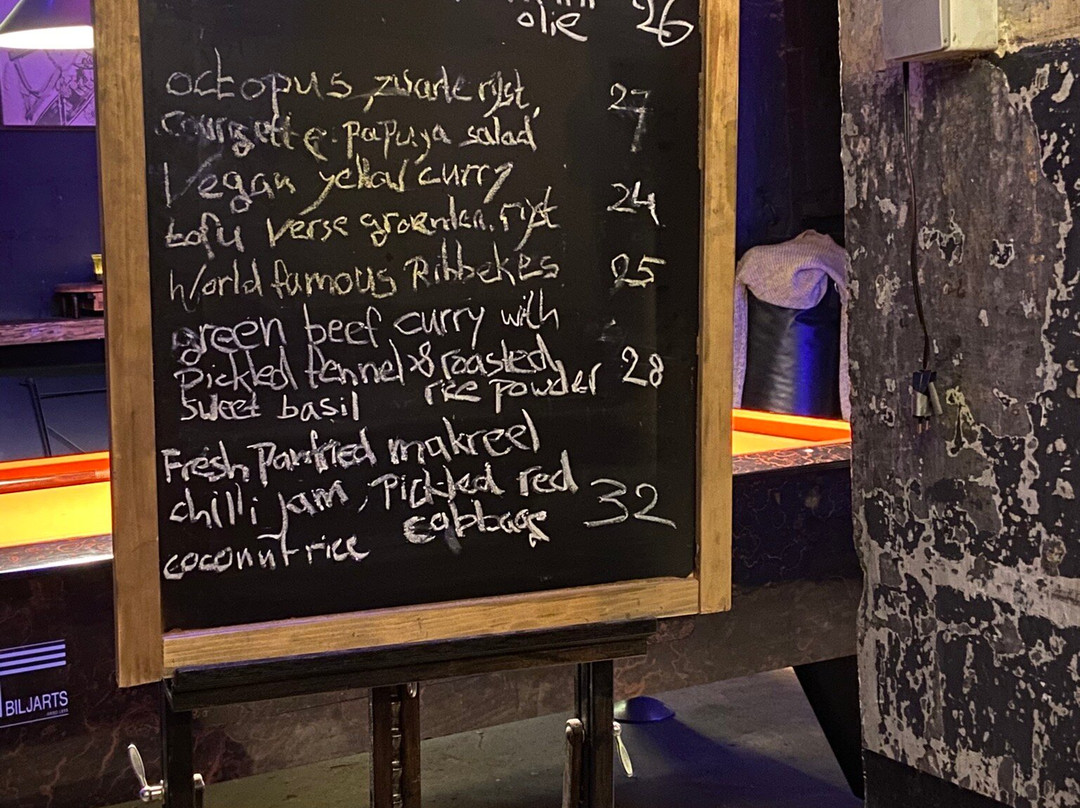 olie 26
octopus, zwarte rijst, 27
courgette. papuya salad
Vegan yellow curry
tofu verse groenten. rijst 24
World famous Ribbekes 25
green beef curry with
pickled fennel & roasted
sweet basil rice powder 28
Fresh Panfried makreel
chilli jam, Pickled red 32
cabbage
coconut rice
BILJARTS